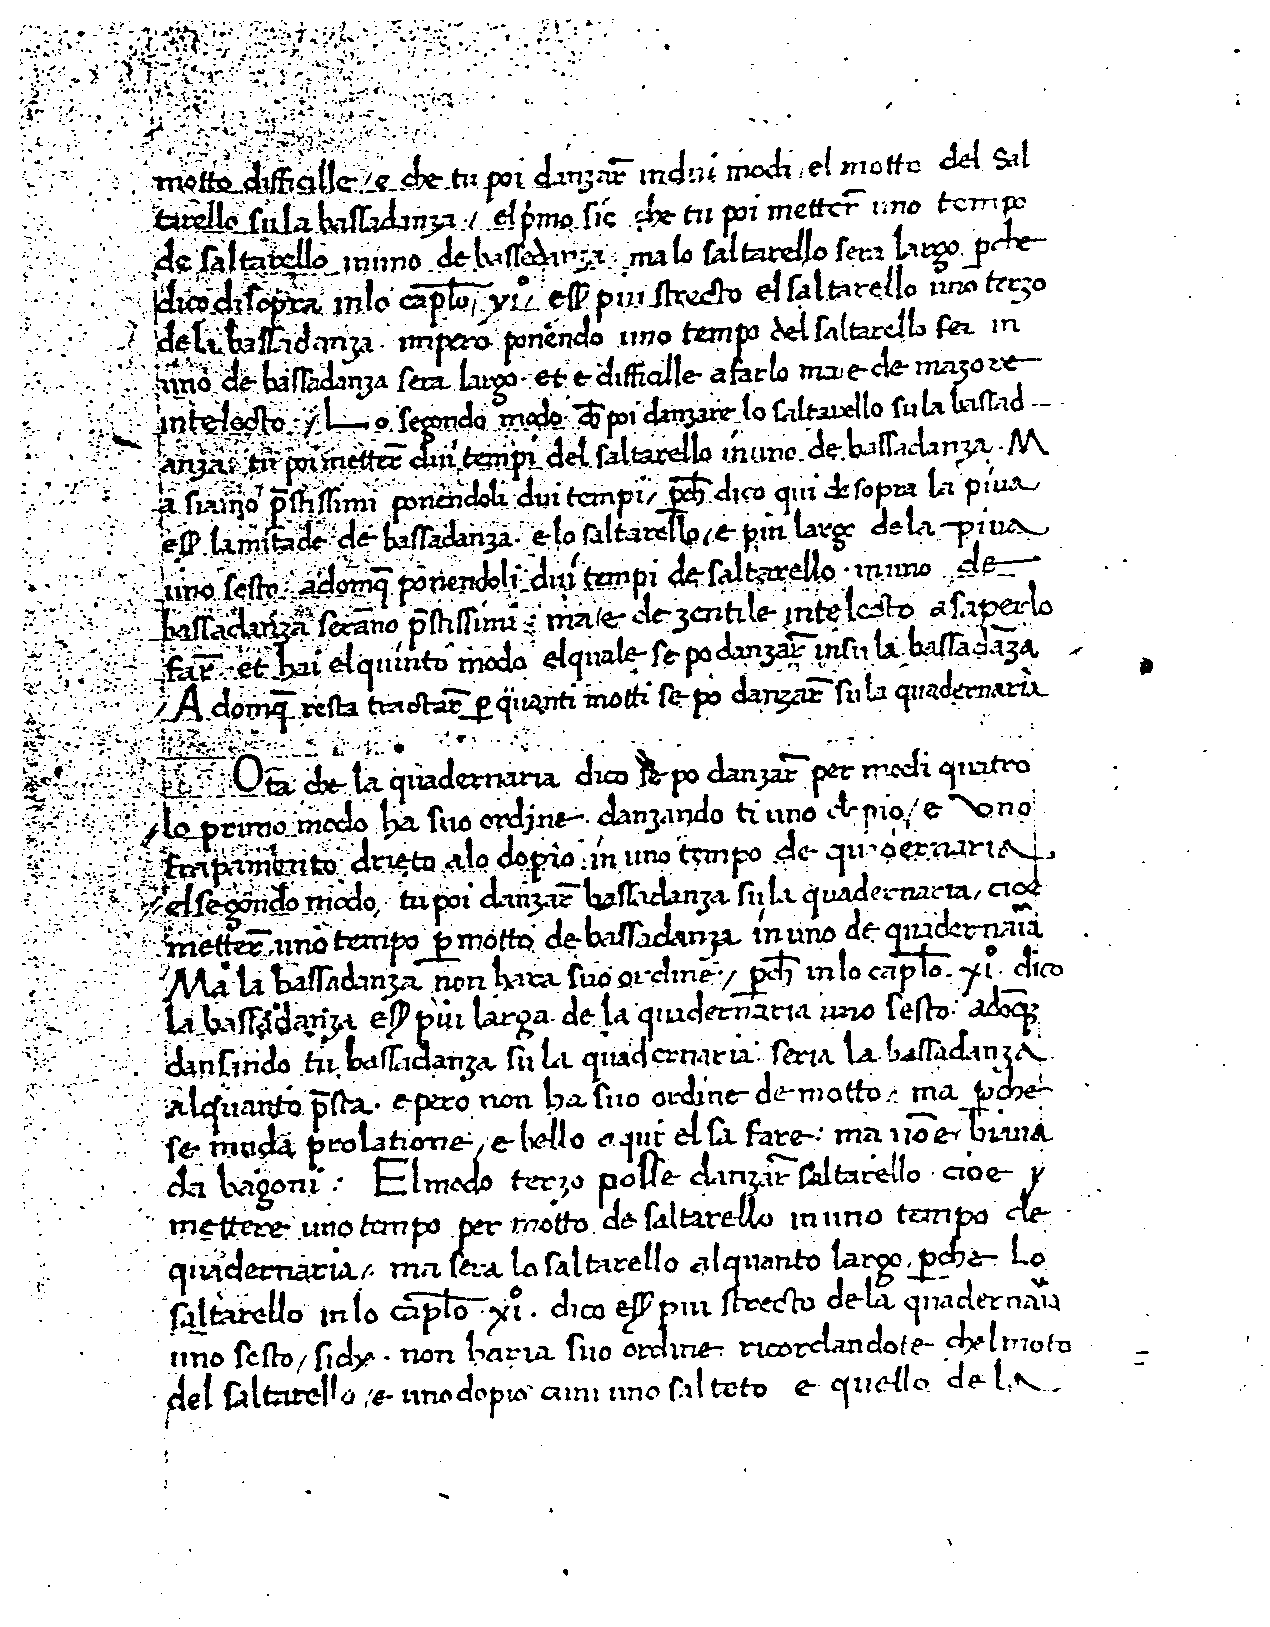 motto difficille / e che tu poi danzar̄ in dui modi, el motto del Sal
tarello su la bassadanza / el p̄mo sie che tu poi metter̄ uno tempo
de saltarello in uno de bassadanza ma lo saltarello sera largo p̱che
dico di sopra in lo cap̄to xi° / ess̱ piu strecto el saltarello uno terzo
de la bassadanza · impero ponendo uno tempo del saltarello sea in
uno de bassadanza sera largo · et e difficille a farlo ma e de mazore
intelecto / Lo segondo modo ch̄ poi danzare lo saltarello su la bassad
anza: tu poi metter̄ dui tempi del saltarello in uno de bassadanza · M
a siano p̄stissimi ponendoli dui tempi / p̱ch̄ dico qui de sopra la piua
ess̱ la mitade de bassadanza · e lo saltarello / e piu largo de la piua
uno sesto: adomq̄ ponendoli dui tempi de saltarello in uno de
bassadanza serano p̄stissimi: ma / e de zentile intelecto a saperlo
far̄ · et hai el quinto modo el quale se po danzar̄ in su la bassadāza
/ Adomq̄ resta tractar̄ p̱ quanti motti se po danzar̄ su la quadernaria
Ota che la quadernaria dico se po danzar̄ per modi quatro
/ lo primo modo ha suo ordjne · danzando ti uno dopio / e Vono
frapamento drieto a lo dopio in uno tempo de quadernaria
// el segondo modo, tu poi danzar̄ bassadanza su la quadernaria, cioe
metter̄ uno tempo p̱ motto de bassadanza in uno de quadernaīa
Ma la bassadanza non hara suo ordine / p̱ch̄ in lo cap̄to · xi° · dico
la bassadanza ess̱ piu larga de la quadernaria uno sesto: adōq̄
dansando tu bassadanza su la quadernaria seria la bassadanza
alquanto p̄sta · e pero non ha suo ordine de motto: ma p̱che
se muda prolatione / e bello a qui el sa fare: ma nōe biuia
da bagoni: El modo terzo posse danzar̄ saltarello · cioe
mettere uno tempo per motto de saltarello in uno tempo de
quadernaria / ma sera lo saltarello alquanto largo p̱che Lo
saltarello in lo cap̄to xi° · dico ess̱ piu strecto de la quadernaīa
uno sesto / siche · non haria suo ordine ricordandote chel moto
del saltarello / e uno dopio cum uno salteto e quello de la